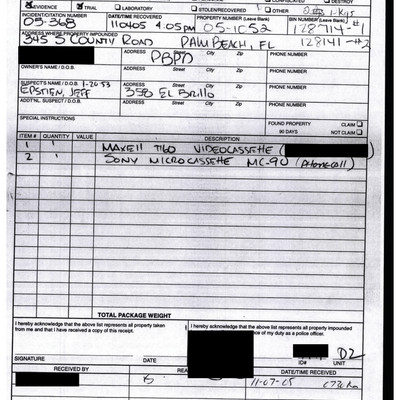 EVIDENCE TRIAL LABORATORY STOLEN/RECOVERED OTHER
INCIDENT/CITATION NUMBER DATE/TIME RECOVERED PROPERTY NUMBER (Leave Blank) BIN NUMBER (Leave Blank)
05-368 110405 4:05pm 05-1C52 128714-#1
ADDRESS WHERE PROPERTY IMPOUNDED
345 S COUNTY ROAD PALM BEACH, FL 128141-#2
ADDRESS Street City Zip PHONE NUMBER
PBPD
OWNER'S NAME / D.O.B. ADDRESS Street City Zip PHONE NUMBER
SUSPECT'S NAME / D.O.B. 1-20-53 ADDRESS Street City Zip PHONE NUMBER
EPSTIEN, JEFF 358 El Brillo
ADDTNL. SUSPECT / D.O.B. ADDRESS Street City Zip PHONE NUMBER
SPECIAL INSTRUCTIONS FOUND PROPERTY CLAIM
90 DAYS NOT CLAIM
ITEM # QUANTITY VALUE DESCRIPTION
1 1 MAXEll T160 VIDEOCASSETTE (
2 1 SONY MICROCASSETTE MC-90 (Phone call)
TOTAL PACKAGE WEIGHT
I hereby acknowledge that the above list represents all property taken I hereby acknowledge that the above list represents all property impounded
from me and that I have received a copy of this receipt. of my duty as a police officer.
D2
SIGNATURE DATE ID# UNIT
RECEIVED BY DATE/TIME RECEIVED
11-07-05